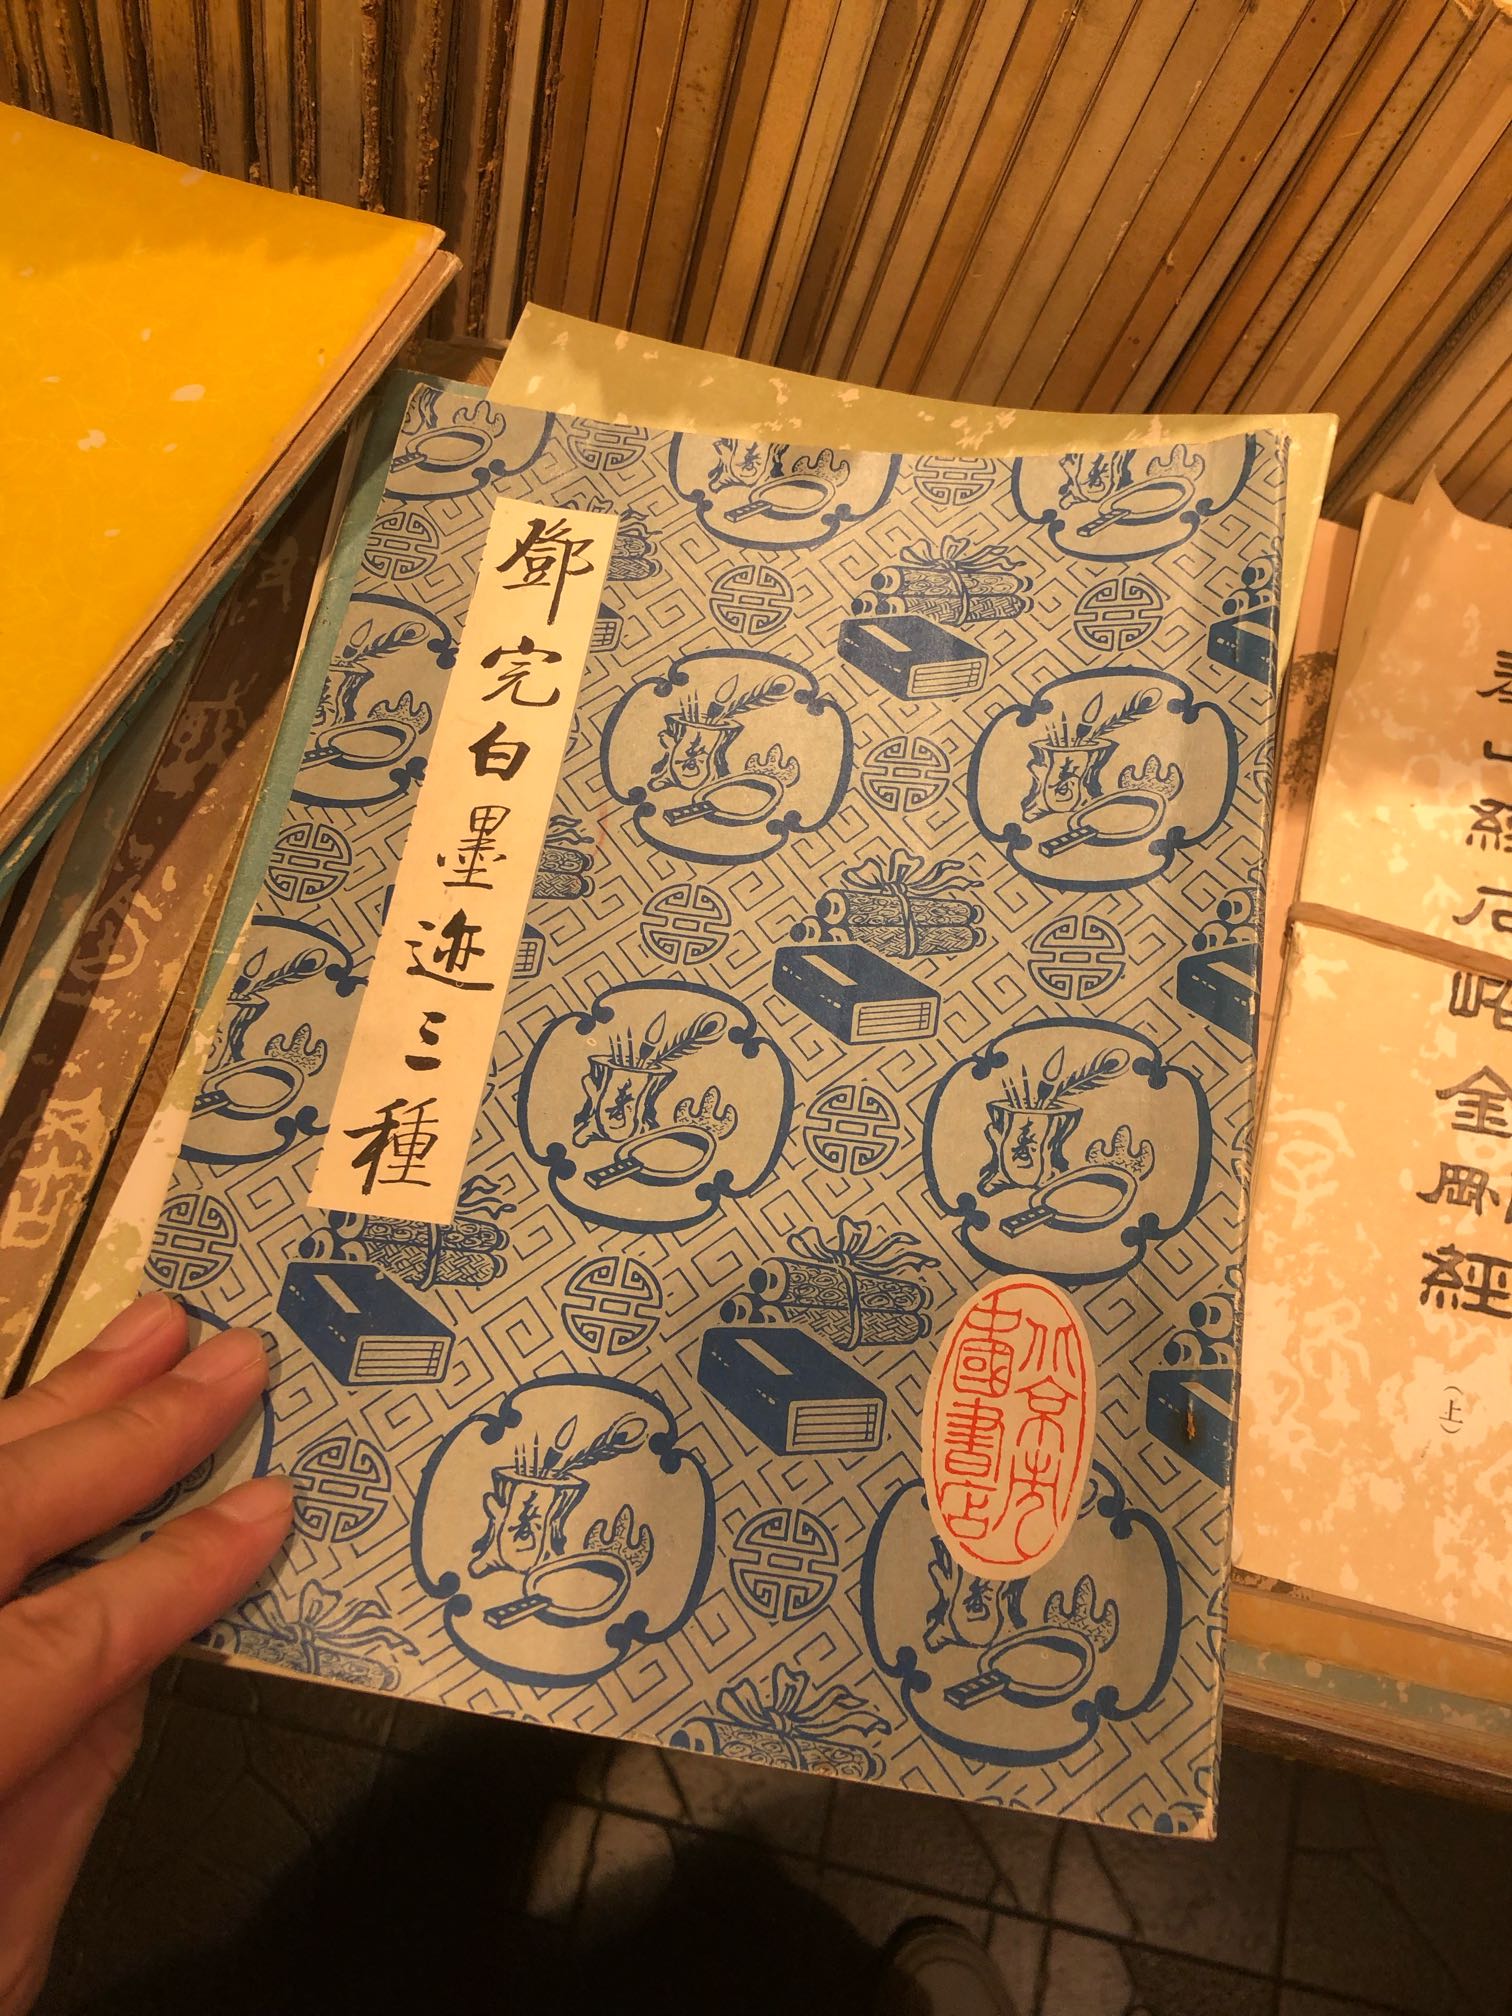 鄧完白墨迹三種
北京市
中國書店
泰山經石峪金剛經
（上）